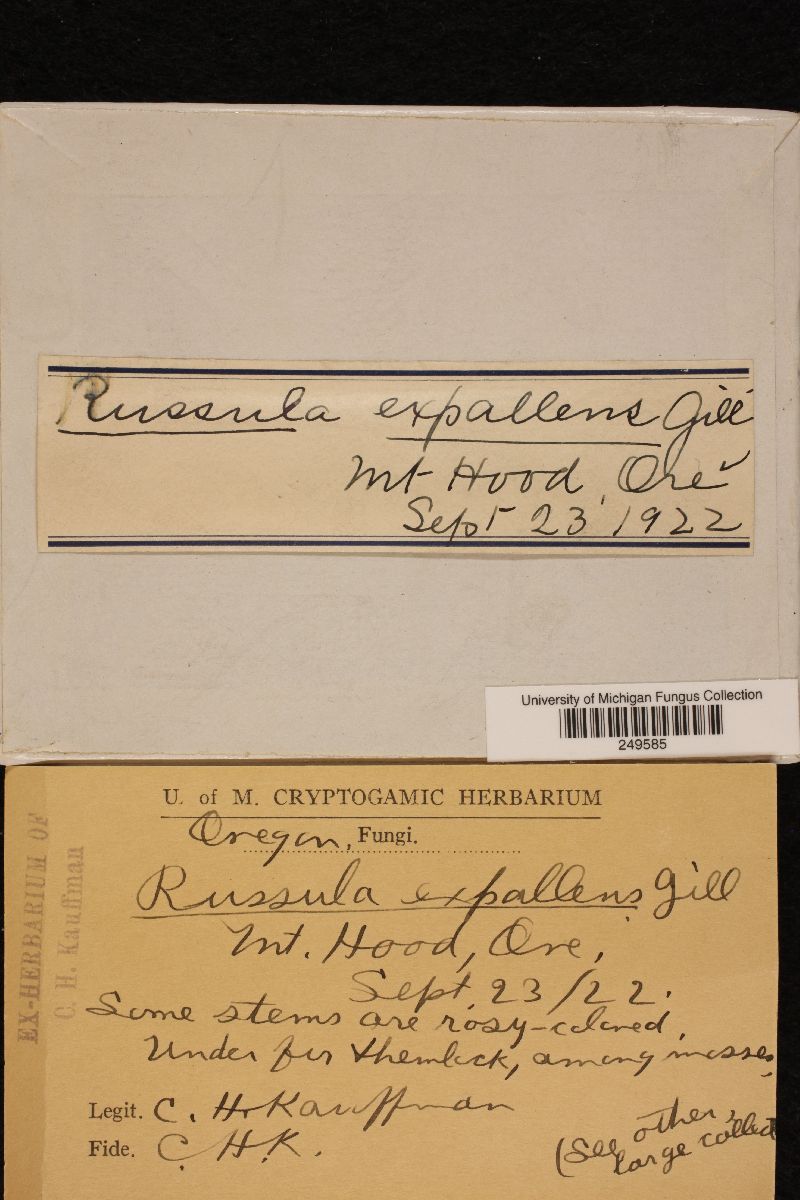 Russula expallens Gill
Mt Hood, Ore
Sept 23 1922
University of Michigan Fungus Collection
249585
U. of M. CRYPTOGAMIC HERBARIUM
Oregon, Fungi.
Russula expallens Gill
Mt. Hood, Ore,
Sept. 23/22.
Some stems are rosy-colored,
Under fir & hemlock, among mosses.
Legit. C. H. Kauffman
Fide. C. H. K.
(See other,
large collect
EX-HERBARIUM OF
C. H. Kauffman